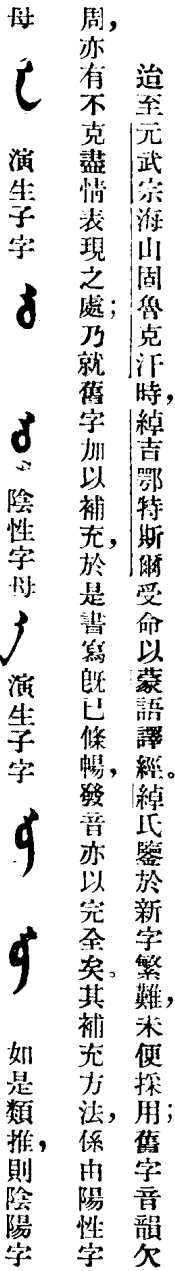 迨至元武宗海山固魯克汗時，綽吉鄂特斯爾受命以蒙語譯經。綽氏鑒於新字繁難，未便採用；舊字音韻欠
周，亦有不克盡情表現之處；乃就舊字加以補充，於是書寫旣已條暢，發音亦以完全矣。其補充方法，係由陽性字
母 演生子字 陰性字母 演生子字 如是類推，則陰陽字